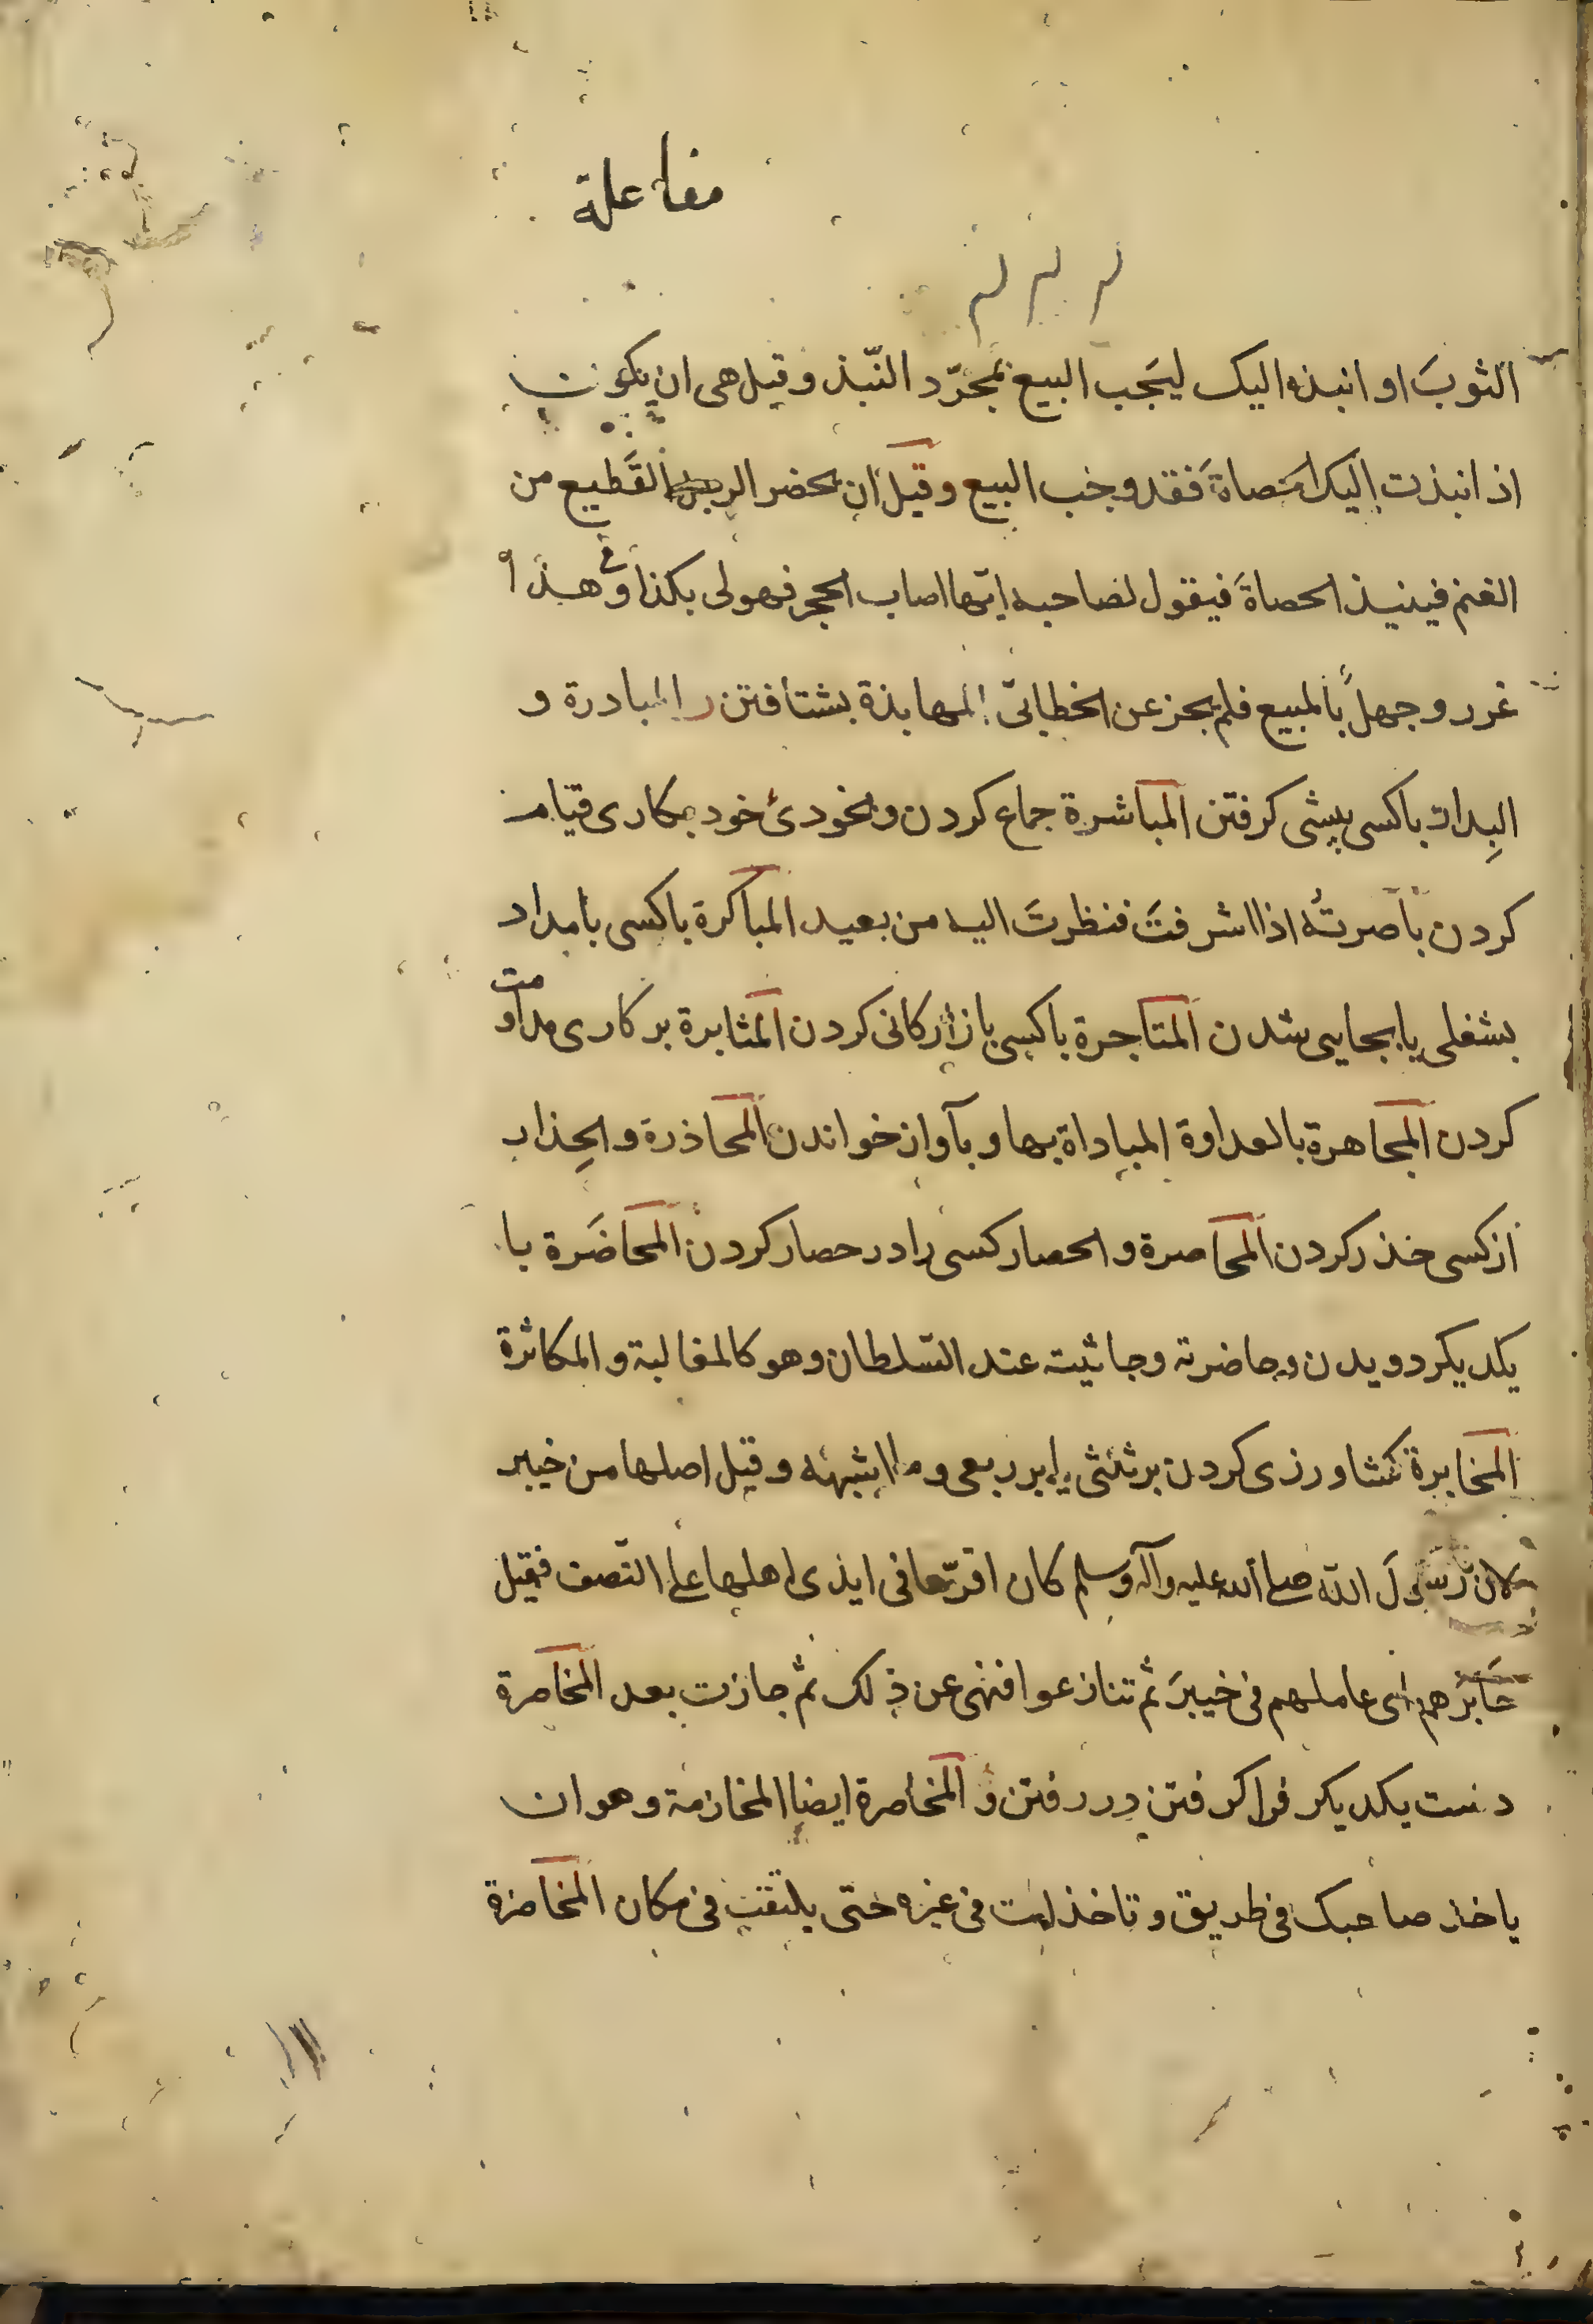 مفاعلة
الثوبَ او انبذه اليک ليَجب البيع بمجرّد النّبذ وقيل هى ان يكون
اذا نبذت اليک الحَصاةَ فقد وجب البيع وقيل ان يحضر الرجل القَطيع من
الغنم فينبذ الحصاةَ فيقول لصاحبه ايّها اصاب الحجر فهو لى بكذا وفى هذا
غرر وجهلً بالمبيع فلم يجز عن الخطابّى المهابذة بشتافتن المبادرة و
البِدار باكسى پيشى كرفتن المباشرة جماع كردن وبخودئ خود بكارى قيام
كردن باصرتُه اذا اشرفتَ فنظرتَ اليه من بعيد المباكرة باكسى بامداد
بشغلى يا بجايى شدن المتاجرة باكسى بازاركانى كردن المثابرة بر كارى مداومت
كردن المجاهرة بالعداوة المباداة بها وبآواز خواندن المحاذرة والحِذار
از كسى حذر كردن المحاصرة والحصار كسى را در حصار كردن المحاضَرة با
يكديكر دويدن وحاضرته وجاثيته عند السّلطان وهو كالمغالبة والمكاثرة
المخابرة كشاورزى كردن بر ثلثى يا بر ربعى وما اشبهه وقيل اصلها من خيبر
لان رسولَ اللّه صلى الله عليه وآله وسلم كان اقرّها فى ايدى اهلها على النّصف فقيل
خَابَرهم اى عاملهم فى خيبرَ ثم تنازعوا فنهى عن ذلک ثم جازت بعد المخاصرة
دست يكديكر فرا كرفتن در رفتن و المخاصرة ايضا المخازمة وهو ان
ياخذ صاحبک فى طريق وتاخذ انت فى غيره حتى يلتقيا فى مكان المخاضرة